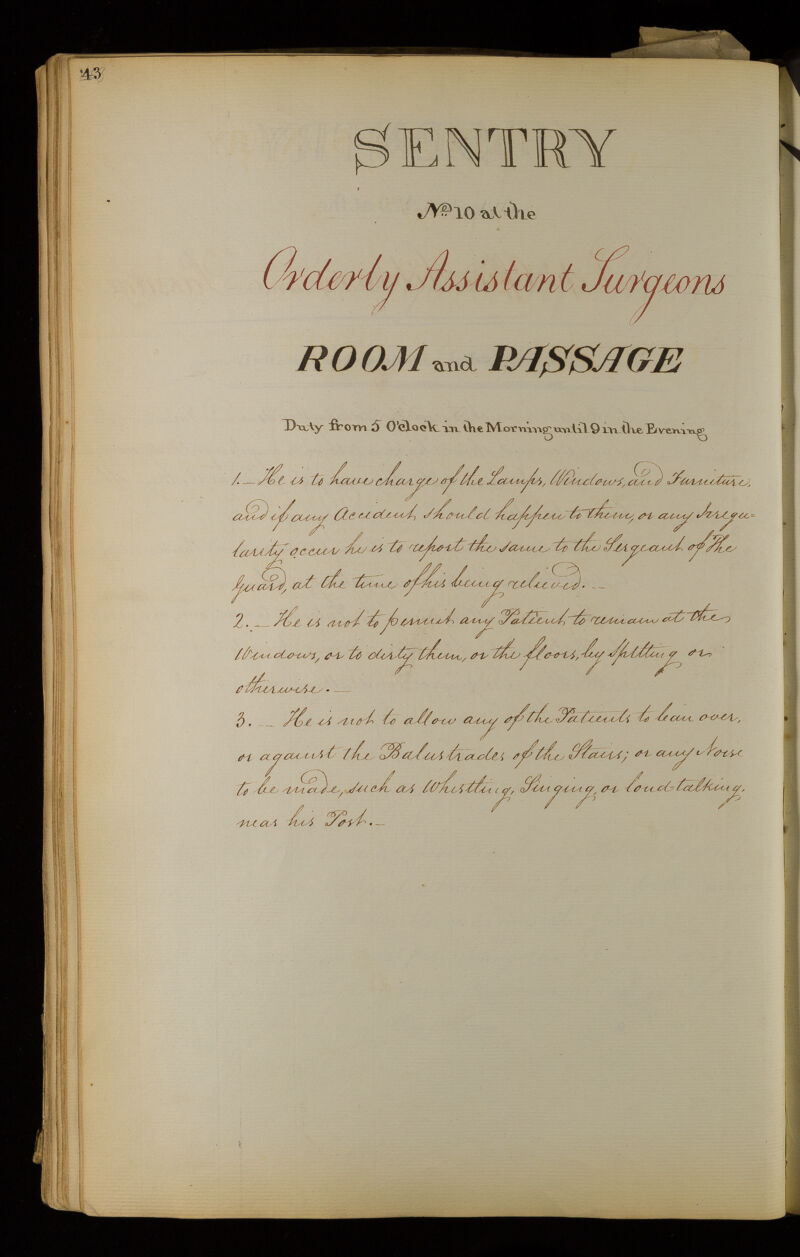 43
SENTRY
No 10 at the
Orderly Assistant Surgeons
ROOM and PASSAGE
Duty from 5 O'Clock in the Morning until 9 in the Evening
1. — He is to have charge of the Lamps, Windows, and Furniture,
and if any Accident should happen to them, or any Irregu=
larity occur he is to report the same to the Sergeant of The
Guard, at the time of his being relieved. —
2. — He is not to permit any Patient to remain at the
Windows, or to dirty them, or the floors, by Spitting or
otherwise. —
3. — He is not to allow any of the Patients to lean over,
or against the Balustrades of the Stairs; or any Noise
to be made, such as Whistling, Singing, or loud talking,
near his Post. —